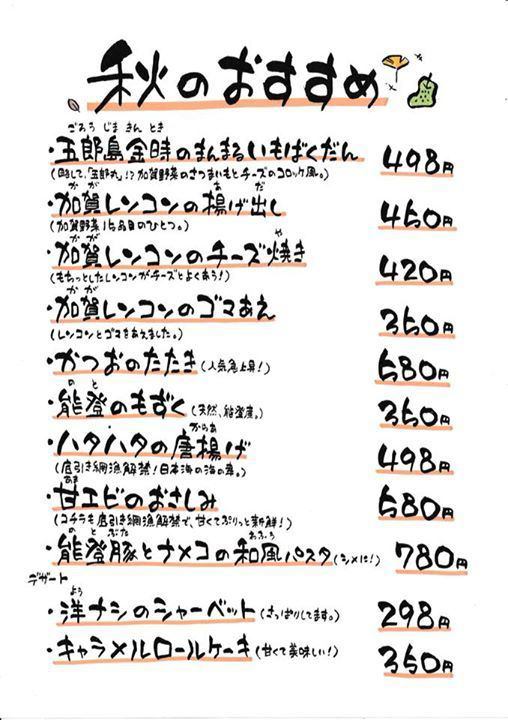 秋のおすすめ
ごろうじまきんとき
・五郎島金時のまんまるいもばくだん 498円
(略して、「五郎丸」!? 加賀野菜のさつまいもとチーズのコロッケ風。)
かが あ だ
・加賀レンコンの揚げ出し 450円
(加賀野菜15品目のひとつ。)
かが や
・加賀レンコンのチーズ焼き 420円
(もちっとしたレンコンがチーズとよくあう!)
かが
・加賀レンコンのゴマあえ 350円
(レンコンとゴマをあえました。)
・かつおのたたき(人気急上昇!) 580円
のと
・能登のもずく(天然、能登産。) 350円
からあ
・ハタハタの唐揚げ 498円
(底引き網漁解禁!日本海の海の幸。)
あま
・甘エビのおさしみ 580円
(コチラも底引き網漁解禁で、甘くてぷりっと新鮮!)
のとぶた わふう
・能登豚とナメコの和風パスタ(シメに!) 780円
デザート
よう
・洋ナシのシャーベット(さっぱりしてます。) 298円
・キャラメルロールケーキ(甘くて美味しい!) 350円